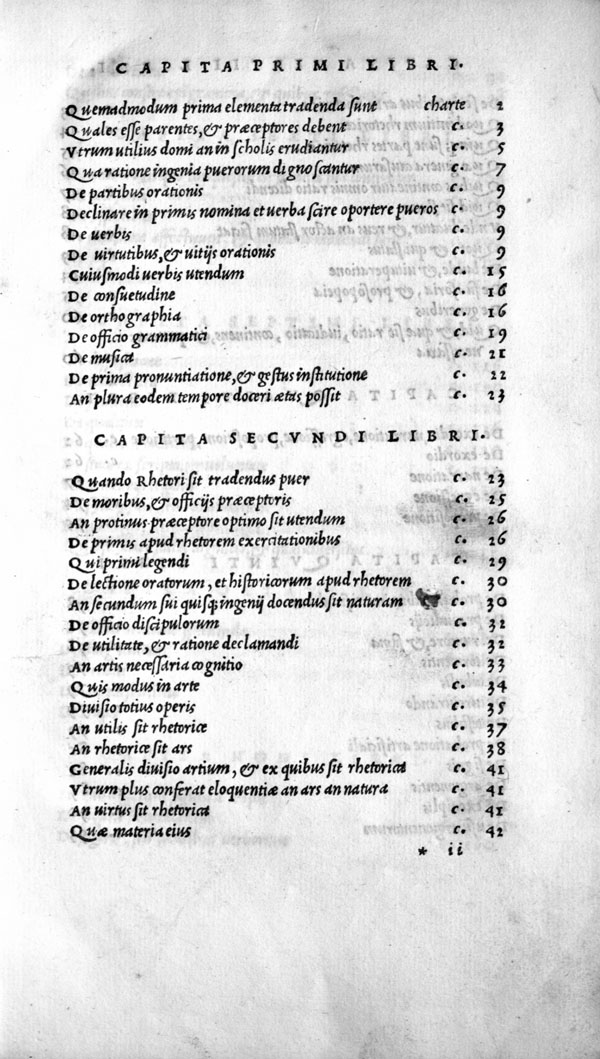 CAPITA PRIMI LIBRI.
Quemadmodum prima elementa tradenda sunt charte 2
Quales esse parentes, & præceptores debent c. 3
Vtrum utilius domi an in scholis erudiantur c. 5
Qua ratione ingenia puerorum dignoscantur c. 7
De partibus orationis c. 9
Declinare in primis nomina et uerba scire oportere pueros c. 9
De uerbis c. 9
De uirtutibus, & uitijs orationis c. 9
Cuiusmodi uerbis utendum c. 15
De consuetudine c. 16
De orthographia c. 16
De officio grammatici c. 19
De musica c. 21
De prima pronuntiatione, & gestus institutione c. 22
An plura eodem tempore doceri ætas possit c. 23
CAPITA SECVNDI LIBRI.
Quando Rhetori sit tradendus puer c. 23
De moribus, & officijs præceptoris c. 25
An protinus præceptore optimo sit utendum c. 26
De primis apud rhetorem exercitationibus c. 26
Qui primi legendi c. 29
De lectione oratorum, et historicorum apud rhetorem c. 30
An secundum sui quisq; ingenij docendus sit naturam c. 30
De officio discipulorum c. 32
De utilitate, & ratione declamandi c. 32
An artis necessaria cognitio c. 33
Quis modus in arte c. 34
Diuisio totius operis c. 35
An utilis sit rhetorice c. 37
An rhetorice sit ars c. 38
Generalis diuisio artium, & ex quibus sit rhetorica c. 41
Vtrum plus conferat eloquentiæ an ars an natura c. 41
An uirtus sit rhetorica c. 41
Quæ materia eius c. 42
* ii